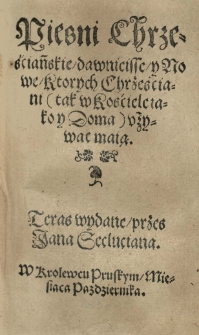 Piesni Chrze-
sciańskie/dawnieisse/y No
we/Ktorych Chrżeścia-
ni (tak w Kościele ia-
ko y Doma) vży-
wać maią.
Teras wydane/przes
Jana Secluciana.
W Krolewcu Pruskym/Mie-
siąca Pazdziernika.